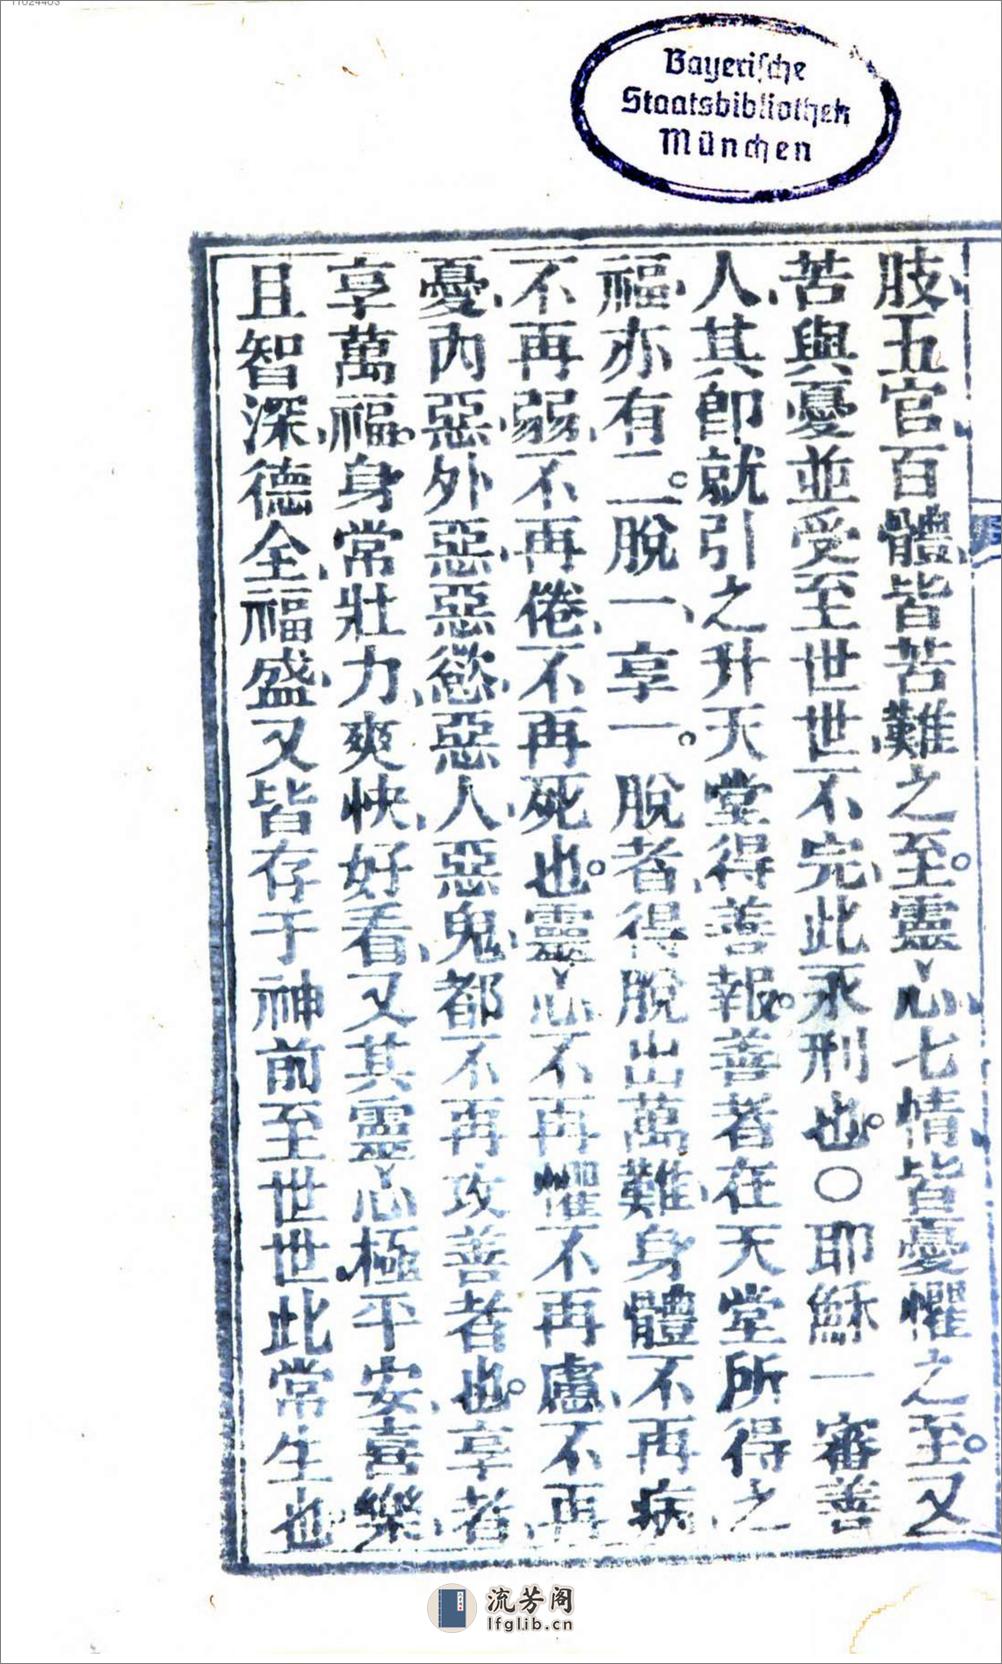 11024403
Bayerische
Staatsbibliothek
München
肢、五官百體、皆苦難之至。靈心、七情皆憂懼之至。又
苦與憂並受、至世世不完、此永刑也。○耶穌一審善
人、其卽就引之升天堂、得善報。善者在天堂所得之
福、亦有二。一脫一、享一。脫者、得脫出萬難、身體不再病、
不再弱、不再倦、不再死也。靈心不再懼、不再慮、不再
憂、內惡、外惡、惡慾、惡人、惡鬼、都不再攻善者也。享者、
享萬福。身常壯力、爽快、好看、又其靈心極平安、喜樂、
且智深、德全、福盛、又皆存于神前至世世。此常生也。
流芳阁
lfglib.cn